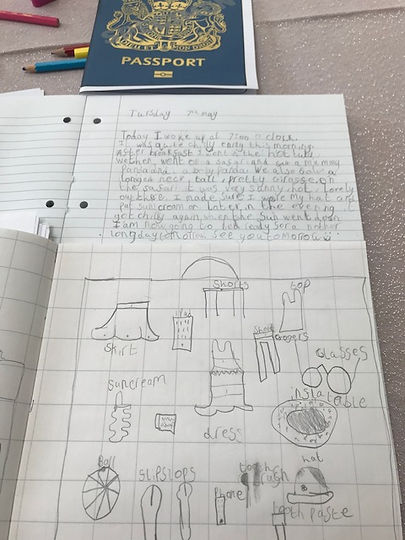 PASSPORT
Tuesday 7th may
Today I woke up at 7:00 o clock.
It was quite chilly early this morning
after breakfast I went the hot
wether, went on a safari and saw a mummy
Panda and a baby Panda. We also saw a
longed neck, tall, pretty Girasse on
the safari. it was very sunny, hot, lovely
out there. I made sure I wore my hat and
put suncream on. Later, in the evening it
got chilly again when the sun went down
I am now going to bed ready for a nother
long day tomorrow see you tomorrow
Shorts
top
Skirt
Glasses
suncream
inslatable
dress
Ball
SlipSlops
tooth
brush
hat
Phone
tooth paste